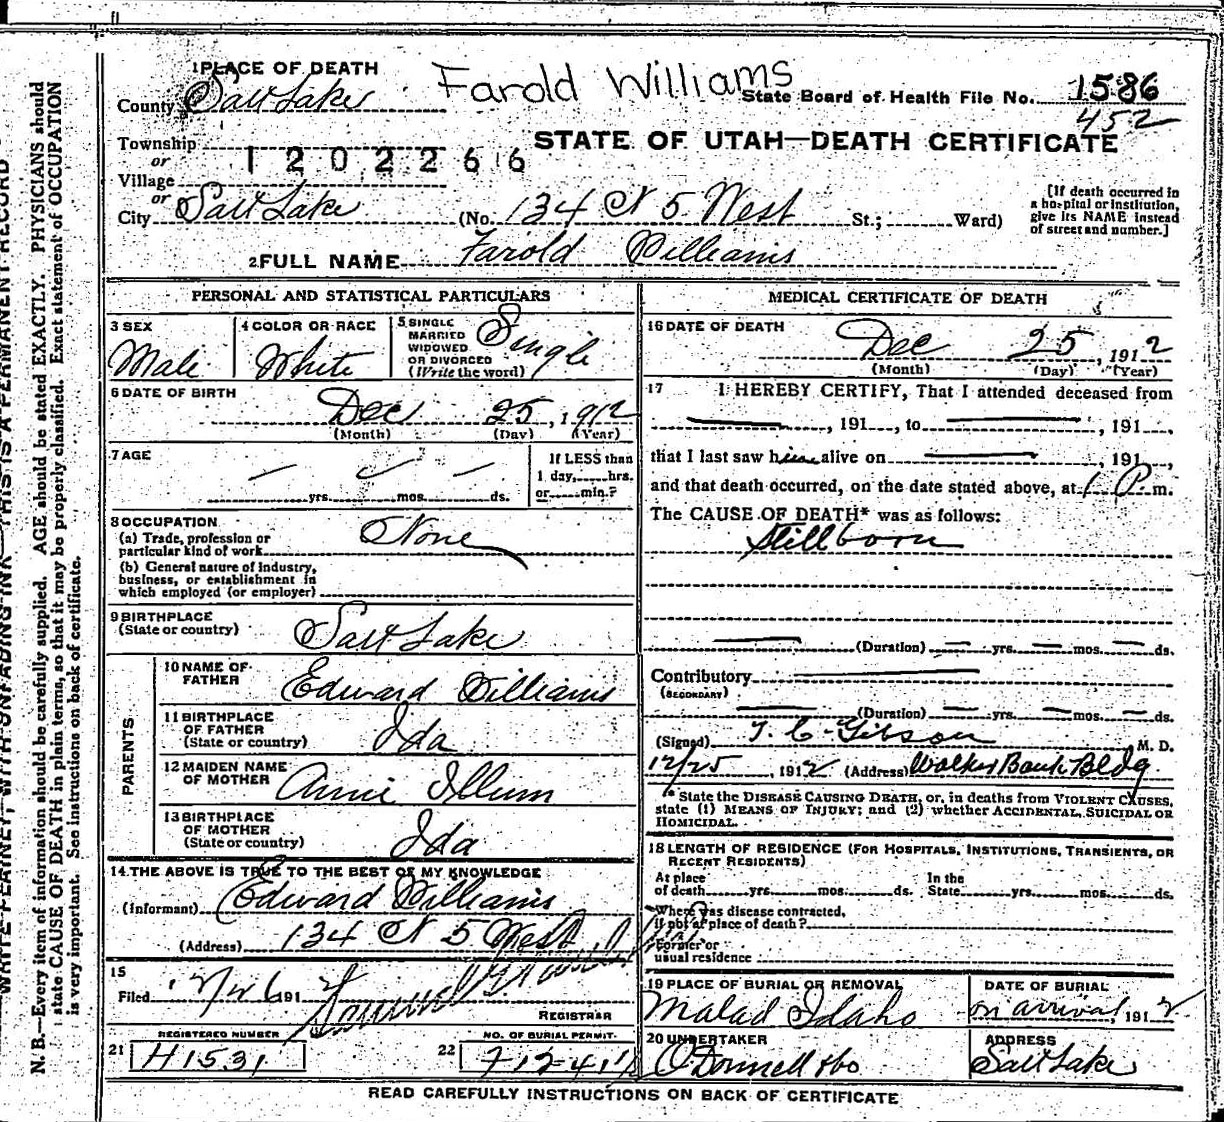 1 PLACE OF DEATH
Farold Williams
County Salt Lake
State Board of Health File No. 1586
452
Township
or
1202266
STATE OF UTAH—DEATH CERTIFICATE
Village
or
City Salt Lake (No. 134 N 5 West St.; Ward)
[If death occurred in
a hospital or institution,
give its NAME instead
of street and number.]
2 FULL NAME Farold Williams
PERSONAL AND STATISTICAL PARTICULARS
3 SEX
Male
4 COLOR OR RACE
White
5 SINGLE
MARRIED
WIDOWED
OR DIVORCED
(Write the word)
Single
6 DATE OF BIRTH
Dec 25, 1912
(Month) (Day) (Year)
7 AGE
yrs. mos. ds.
If LESS than
1 day, hrs.
or min.?
8 OCCUPATION
(a) Trade, profession or
particular kind of work
None
(b) General nature of industry,
business, or establishment in
which employed (or employer)
9 BIRTHPLACE
(State or country)
Salt Lake
PARENTS
10 NAME OF
FATHER
Edward Williams
11 BIRTHPLACE
OF FATHER
(State or country)
Ida
12 MAIDEN NAME
OF MOTHER
Annie Illum
13 BIRTHPLACE
OF MOTHER
(State or country)
Ida
14 THE ABOVE IS TRUE TO THE BEST OF MY KNOWLEDGE
(Informant) Edward Williams
(Address) 134 N 5 West
15
Filed 191
REGISTRAR
REGISTERED NUMBER
21 H1531
NO. OF BURIAL PERMIT
22
MEDICAL CERTIFICATE OF DEATH
16 DATE OF DEATH
Dec 25, 1912
(Month) (Day) (Year)
17 I HEREBY CERTIFY, That I attended deceased from
, 191 , to , 191 ,
that I last saw h alive on , 191 ,
and that death occurred, on the date stated above, at 1 P. m.
The CAUSE OF DEATH* was as follows:
Stillborn
(Duration) yrs. mos. ds.
Contributory
(SECONDARY)
(Duration) yrs. mos. ds.
(Signed) T. C. Gibson M. D.
12/25, 1912 (Address) Walker Bank Bldg
* State the DISEASE CAUSING DEATH, or, in deaths from VIOLENT CAUSES,
state (1) MEANS OF INJURY; and (2) whether ACCIDENTAL, SUICIDAL OR
HOMICIDAL.
18 LENGTH OF RESIDENCE (FOR HOSPITALS, INSTITUTIONS, TRANSIENTS, OR
RECENT RESIDENTS)
At place
of death yrs. mos. ds.
In the
State yrs. mos. ds.
Where was disease contracted,
If not at place of death?
Former or
usual residence
19 PLACE OF BURIAL OR REMOVAL
Malad Idaho
DATE OF BURIAL
on arrival, 1912
20 UNDERTAKER
O'Donnell & Co
ADDRESS
Salt Lake
READ CAREFULLY INSTRUCTIONS ON BACK OF CERTIFICATE
WRITE PLAINLY, WITH UNFADING INK—THIS IS A PERMANENT RECORD
N. B.—Every item of information should be carefully supplied. AGE should be stated EXACTLY. PHYSICIANS should
state CAUSE OF DEATH in plain terms, so that it may be properly classified. Exact statement of OCCUPATION
is very important. See instructions on back of certificate.